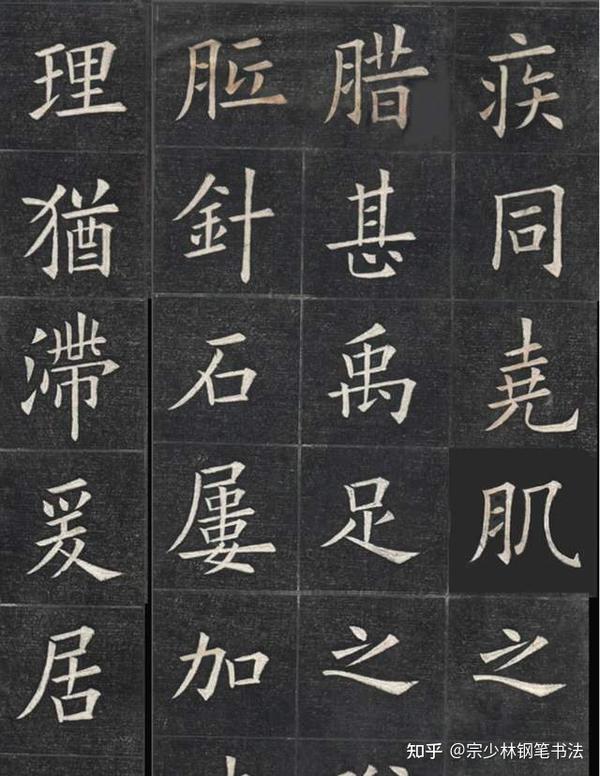 疾同堯肌之
腊甚禹足之
胝針石屢加
理猶滯爰居
知乎 @宗少林钢笔书法